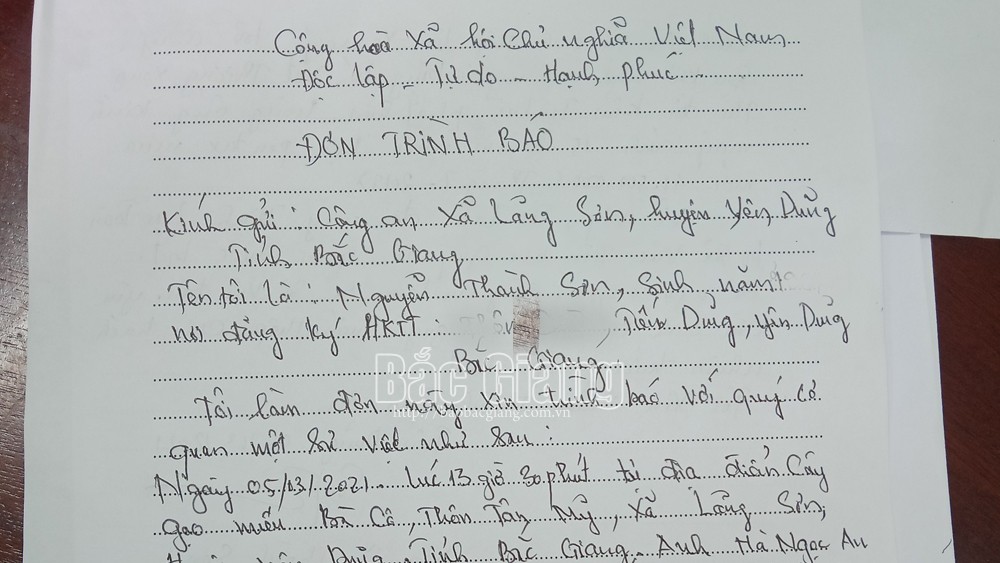 Cộng hoà Xã hội Chủ nghĩa Việt Nam
Độc lập - Tự do - Hạnh phúc
ĐƠN TRÌNH BÁO
Kính gửi: Công an Xã Lãng Sơn, huyện Yên Dũng
Tỉnh Bắc Giang
Tên tôi là: Nguyễn Thành Sơn, Sinh năm:
nơi đăng ký HKTT: Tiến Dũng, Yên Dũng
Bắc Giang
Tôi làm đơn này xin trình báo với quý cơ
quan một sự việc như sau:
Ngày 05/03/2021 lúc 13 giờ 30 phút tại địa điểm Cây
gạo miếu Bà Cô, Thôn Tân Mỹ, xã Lãng Sơn,
Dũng, Tỉnh Bắc Giang Anh Hà Ngọc Au
Bắc Giang
http://baobacgiang.com.vn